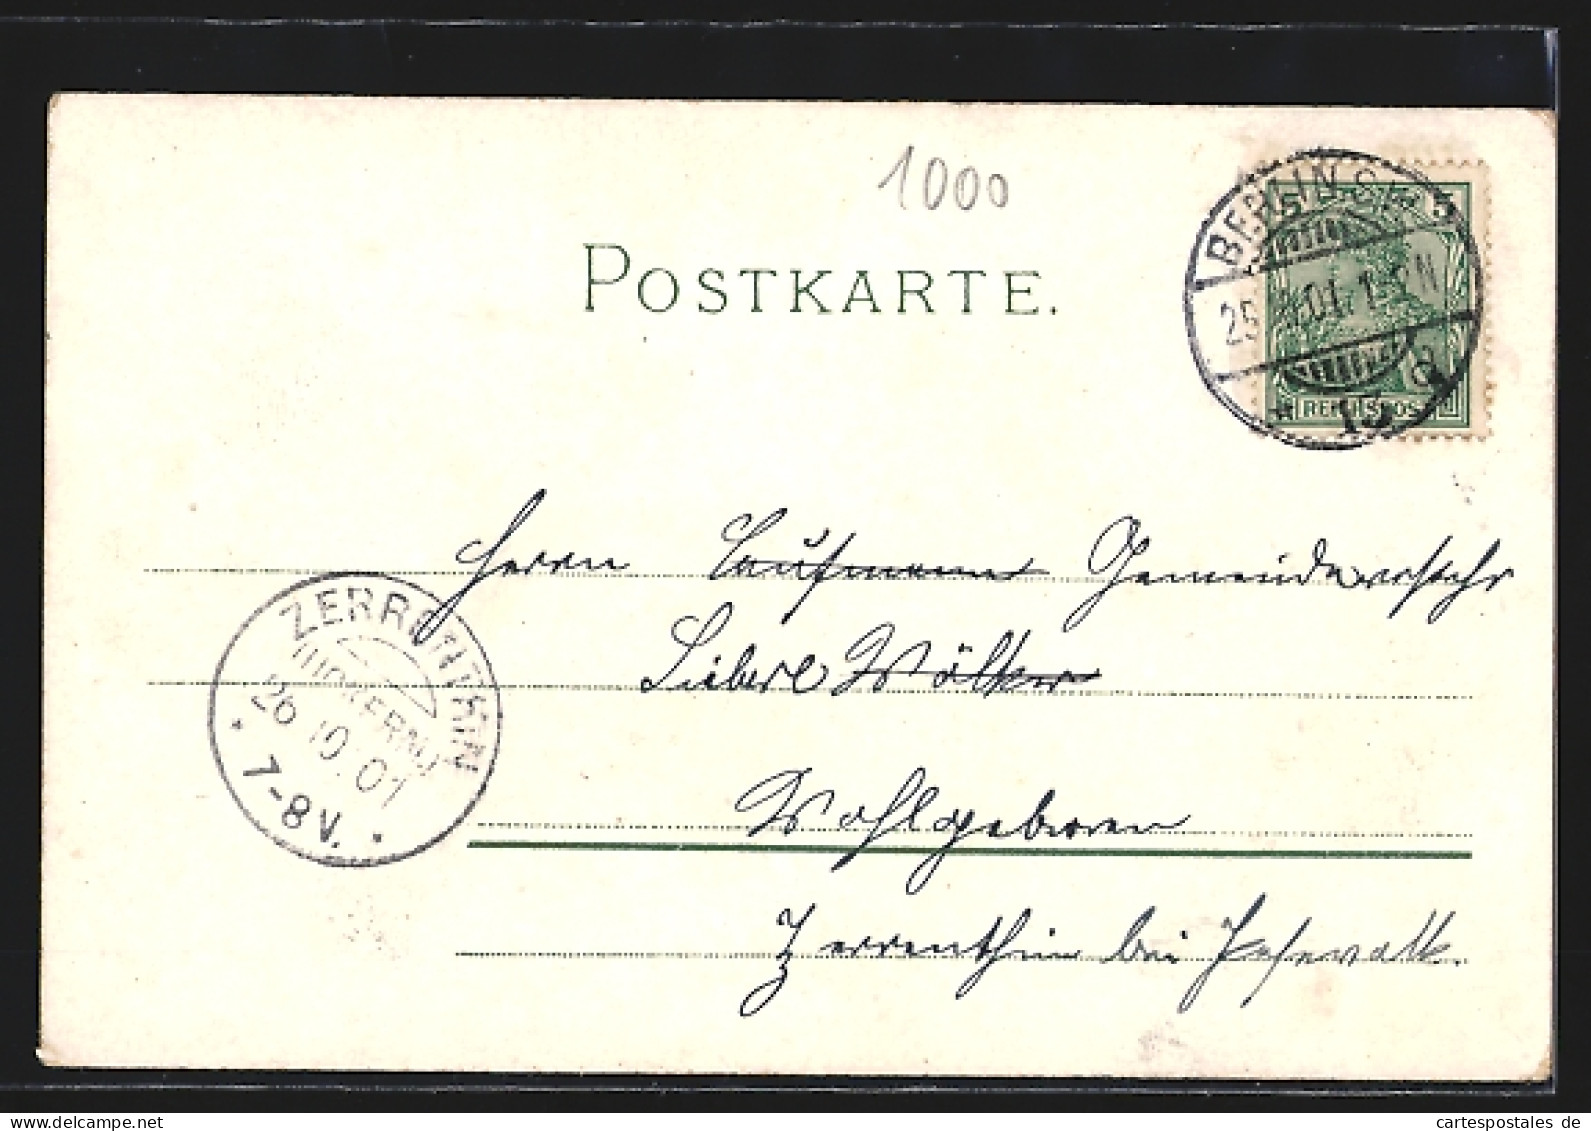 1000
POSTKARTE.
BERLIN S.W.
25. .01. 1- N
* 13 a
5
REICHSPOST
Herrn Kaufmann Gemeindevorsteher
Wölker
Wohlgeboren
Zerrenthin bei Pasewalk.
ZERRENTHIN
(UCKERM)
26 10.01
7-8V.
cartespostales de